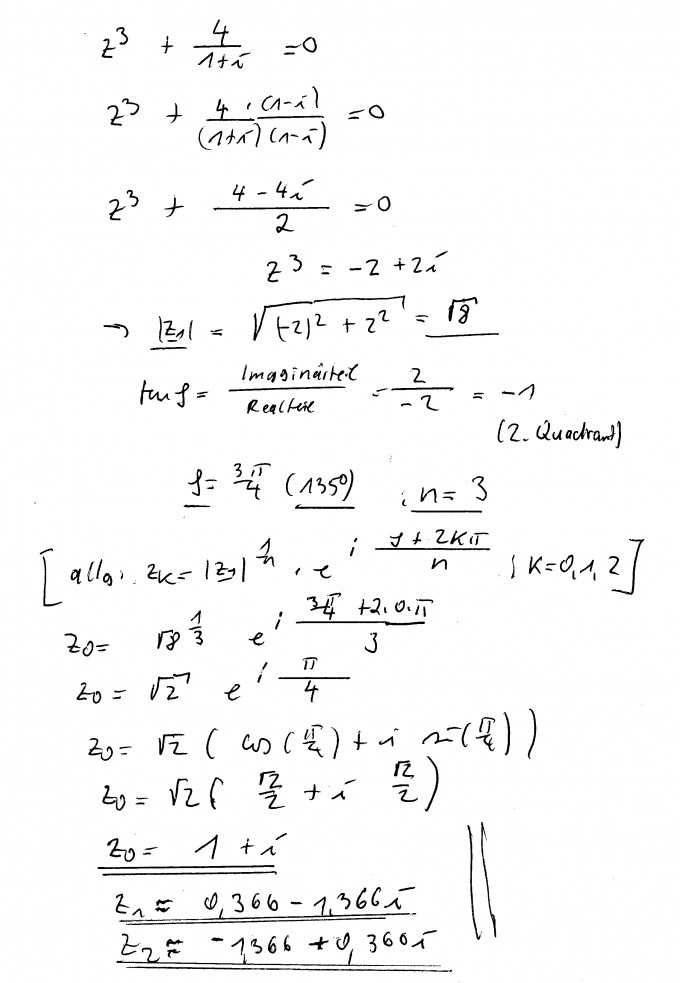 z³ + 4/(1+i) = 0
z³ + (4 · (1-i))/((1+i)(1-i)) = 0
z³ + (4 - 4i)/2 = 0
z³ = -2 + 2i
→ |z₁| = √((-2)² + 2²) = √8
tan φ = Imaginärteil/Realteil = 2/-2 = -1
(2. Quadrant)
φ = 3π/4 (135°) ; n = 3
[ allg: z_K = |z₁|^(1/n) · e^(i (φ + 2Kπ)/n) ; K = 0, 1, 2 ]
z₀ = √8^(1/3) e^(i (3π/4 + 2·0·π)/3)
z₀ = √2 e^(i π/4)
z₀ = √2 ( cos(π/4) + i sin(π/4) )
z₀ = √2 ( √2/2 + i √2/2 )
z₀ = 1 + i
z₁ ≈ 0,366 - 1,366i
z₂ ≈ -1,366 + 0,366i